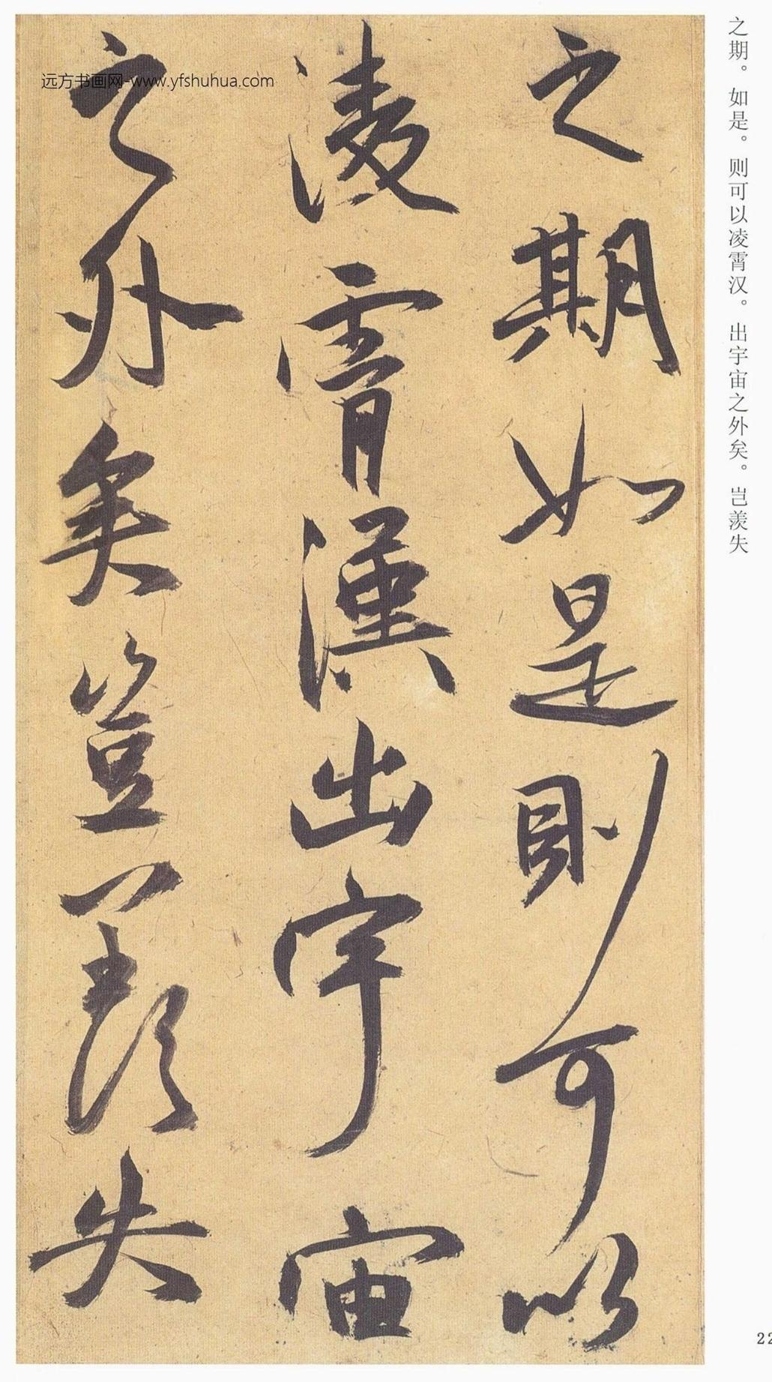 之期。如是。则可以凌霄汉。出宇宙之外矣。岂羡失
之期如是則可以
凌霄漢出宇宙
之外矣豈羡失
远方书画网-www.yfshuhua.com
22